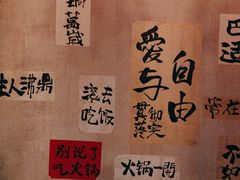 萬歲
巴适
愛与自由
贯彻落实
人沸鼎
滚去
吃饭
常在
别说了
吃火锅
火锅一開
不如